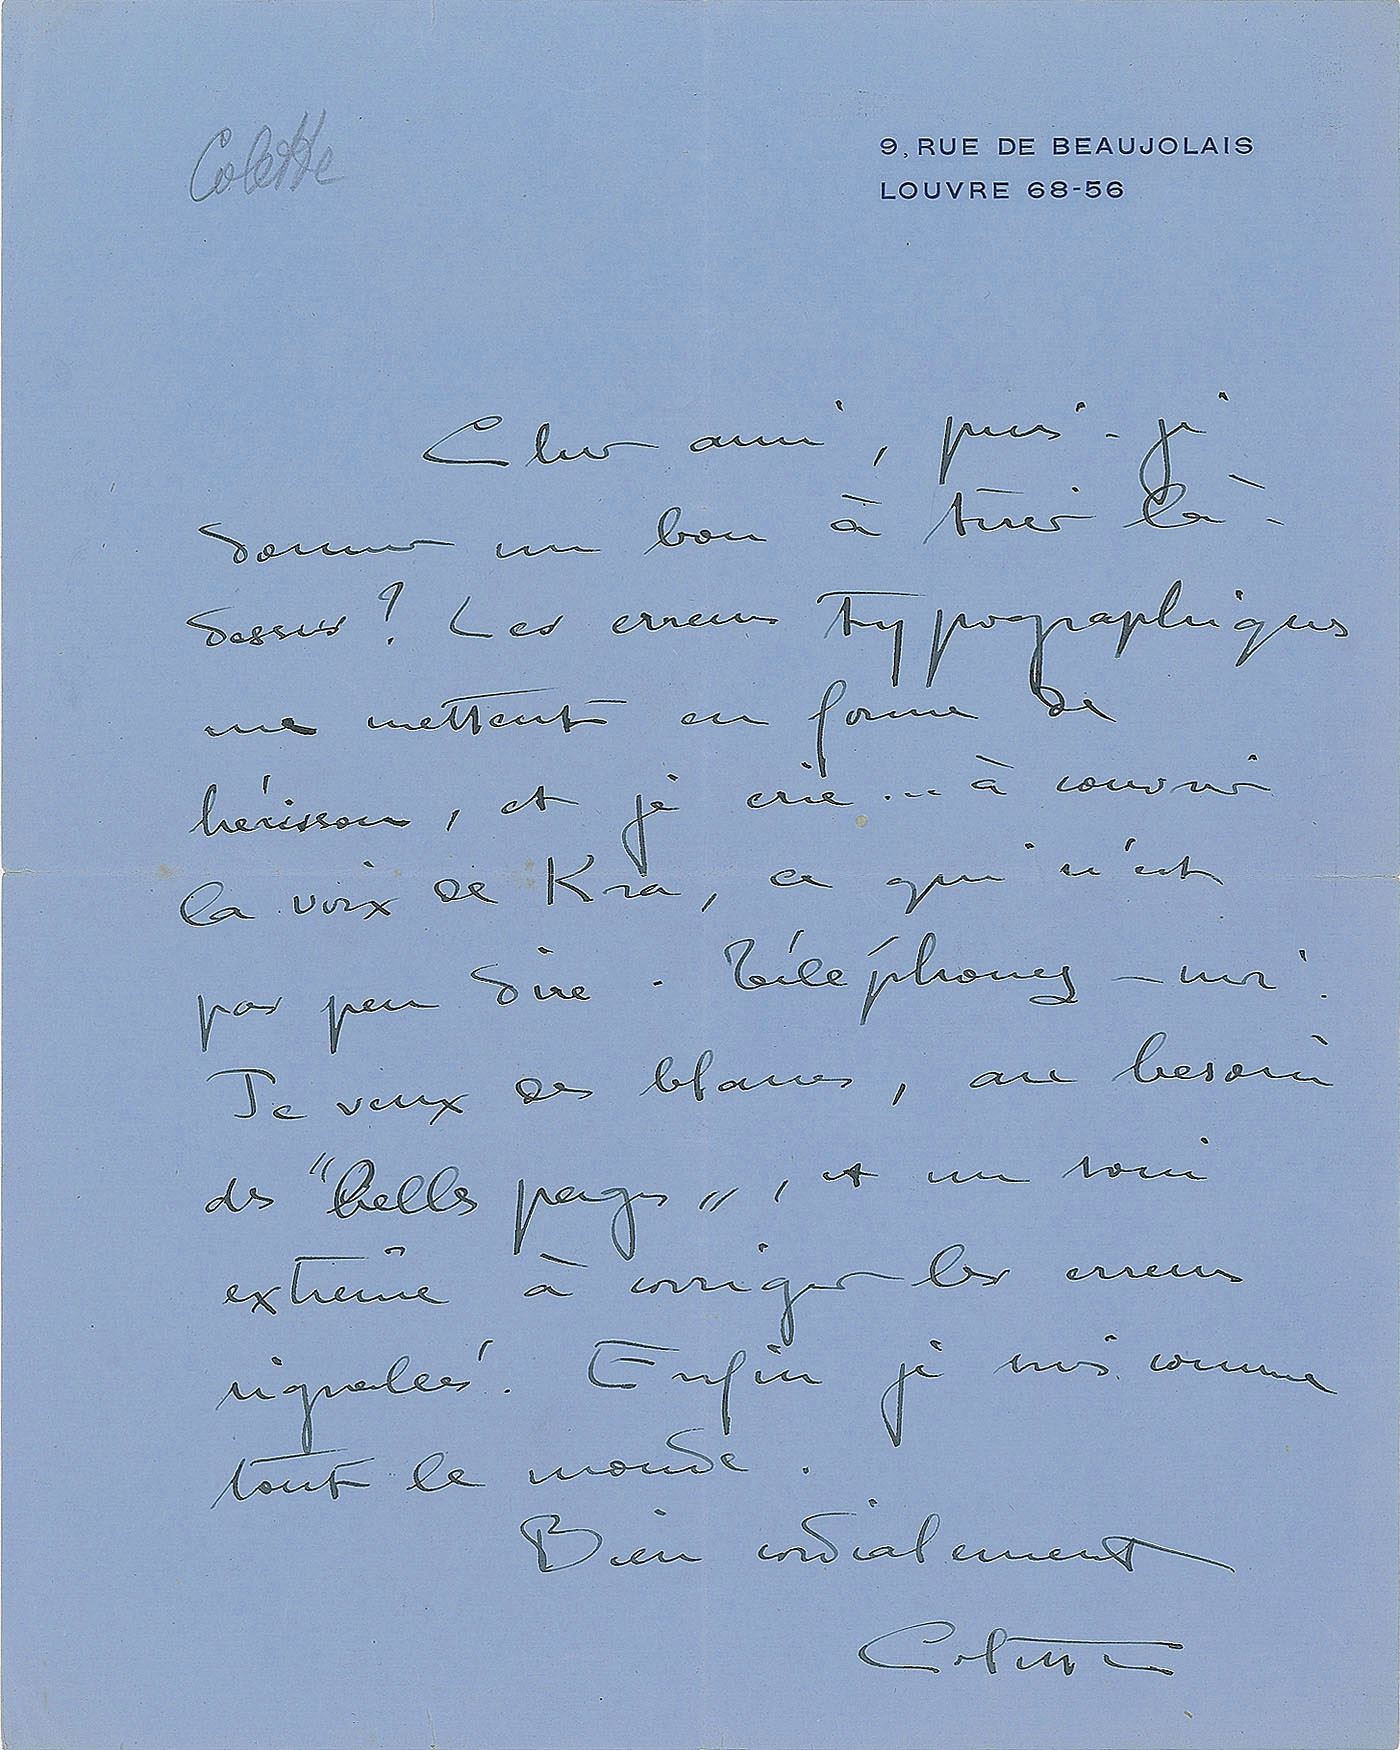 Colette
9, RUE DE BEAUJOLAIS
LOUVRE 68-56
Cher ami, puis-je
donner un bon à tirer là-
dessus ? Les erreurs typographiques
me mettent en forme de
hérisson, et je crie... à couvrir
la voix de Kra, ce qui n'est
pas peu dire. Téléphonez-moi.
Je veux des blancs, au besoin
des "belles pages", et un soin
extrême à corriger les erreurs
signalées. Enfin je suis comme
tout le monde.
Bien cordialement
Colette